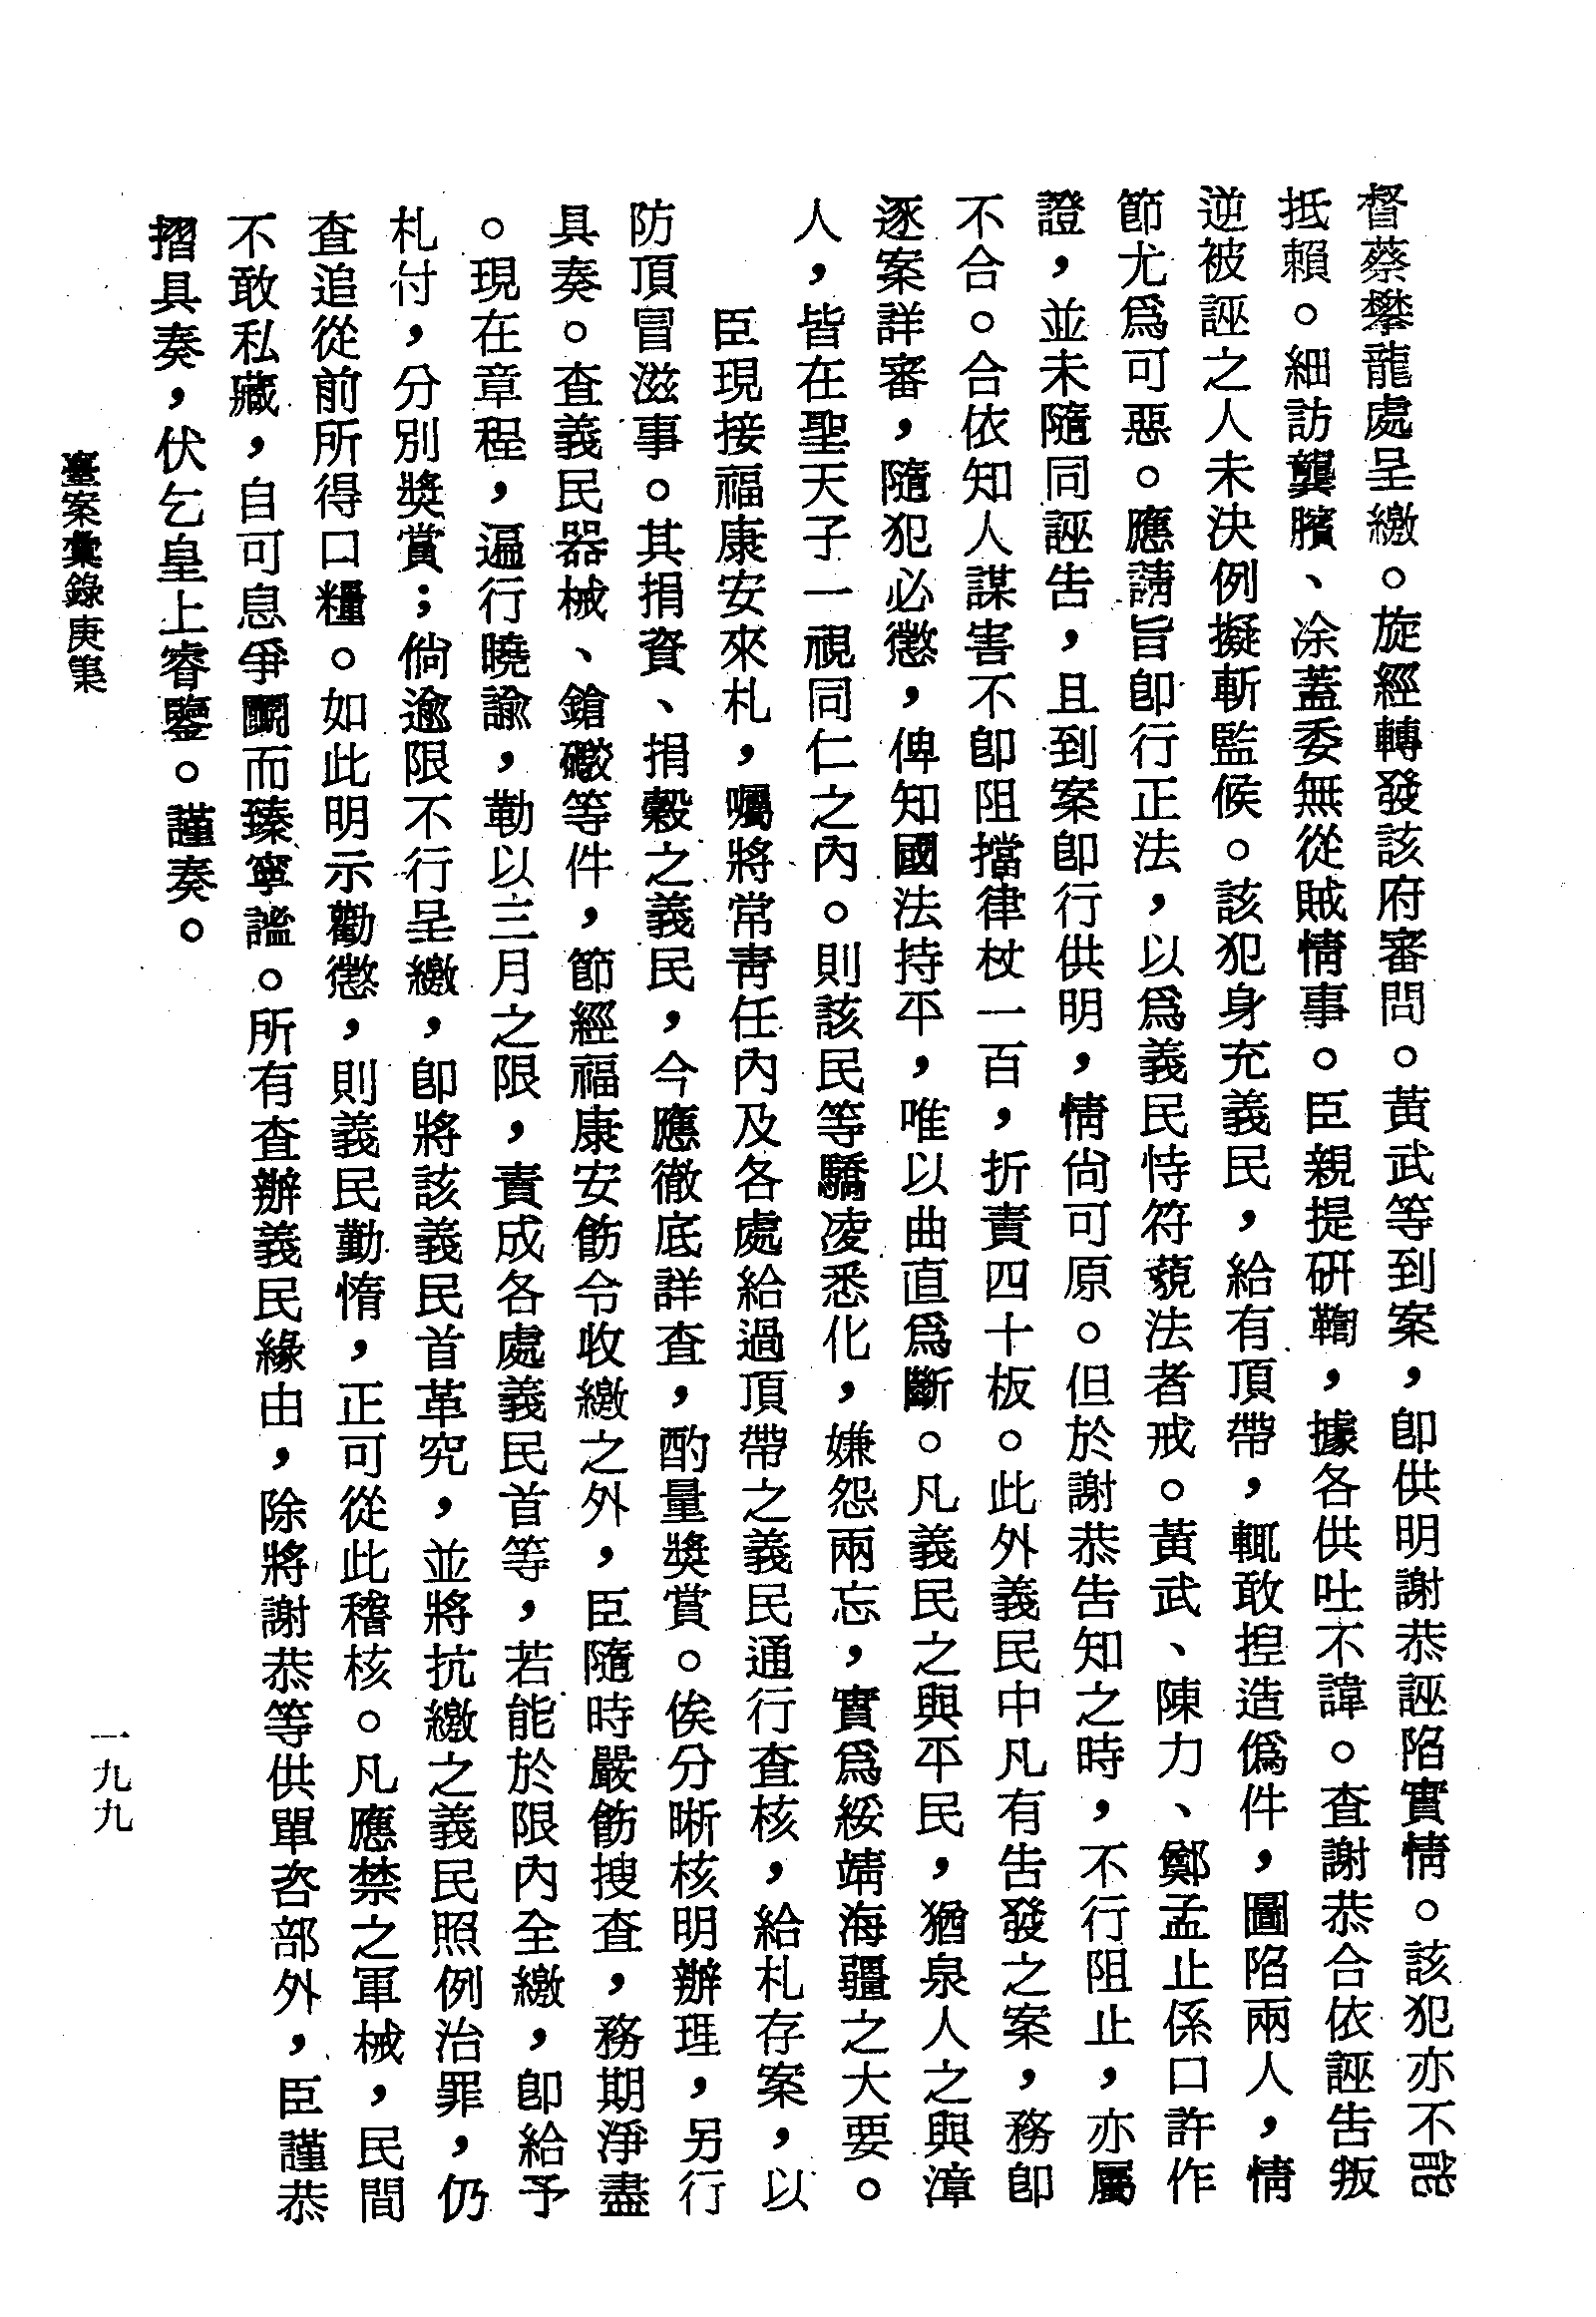 督蔡攀龍處呈繳。旋經轉發該府審問。黃武等到案，卽供明謝恭誣陷實情。該犯亦不能
抵賴。細訪龔臏、凃蓋委無從賊情事。臣親提研鞫，據各供吐不諱。查謝恭合依誣告叛
逆被誣之人未決例擬斬監候。該犯身充義民，給有頂帶，輒敢揑造僞件，圖陷兩人，情
節尤爲可惡。應請旨卽行正法，以爲義民恃符藐法者戒。黃武、陳力、鄭孟止係口許作
證，並未隨同誣告，且到案卽行供明，情尚可原。但於謝恭告知之時，不行阻止，亦屬
不合。合依知人謀害不卽阻擋律杖一百，折責四十板。此外義民中凡有告發之案，務卽
逐案詳審，隨犯必懲，俾知國法持平，唯以曲直爲斷。凡義民之與平民，猶泉人之與漳
人，皆在聖天子一視同仁之內。則該民等驕凌悉化，嫌怨兩忘，實爲綏靖海疆之大要。
臣現接福康安來札，囑將常青任內及各處給過頂帶之義民通行查核，給札存案，以
防頂冒滋事。其捐資、捐穀之義民，今應徹底詳查，酌量獎賞。俟分晰核明辦理，另行
具奏。查義民器械、鎗礮等件，節經福康安飭令收繳之外，臣隨時嚴飭搜查，務期淨盡
。現在章程，遍行曉諭，勒以三月之限，責成各處義民首等，若能於限內全繳，卽給予
札付，分別獎賞；倘逾限不行呈繳，卽將該義民首革究，並將抗繳之義民照例治罪，仍
查追從前所得口糧。如此明示勸懲，則義民勤惰，正可從此稽核。凡應禁之軍械，民間
不敢私藏，自可息爭鬭而臻寧謐。所有查辦義民緣由，除將謝恭等供單咨部外，臣謹恭
摺具奏，伏乞皇上睿鑒。謹奏。
臺案彙錄庚集
一九九